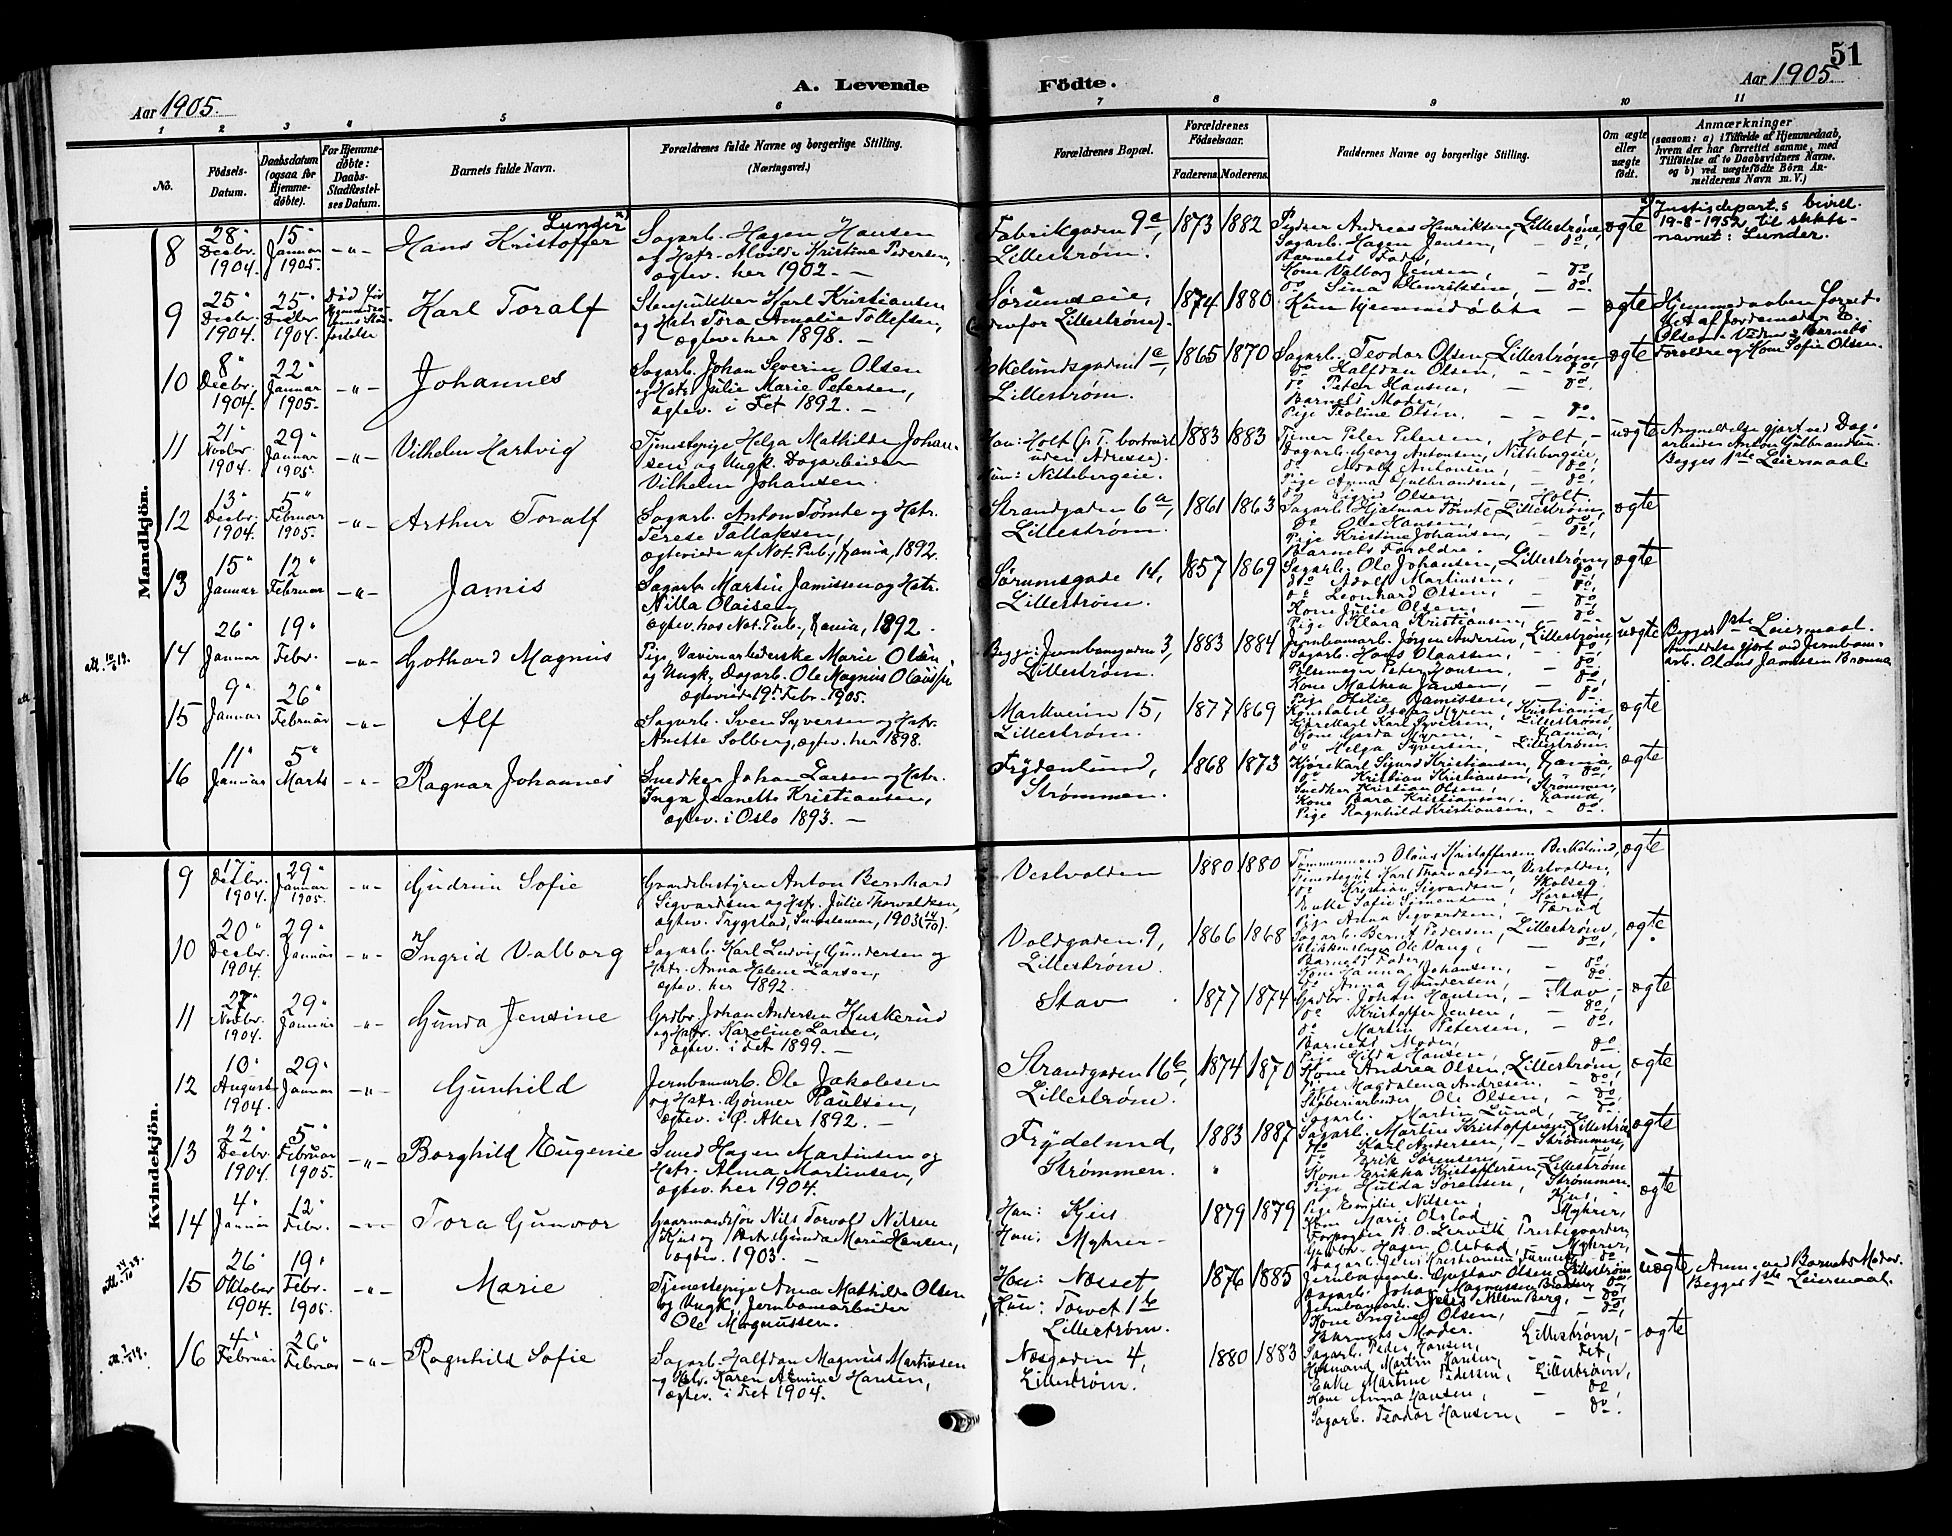 51
Aar 1905.
A. Levende Födte.
Aar 1905.
1 2 3 4 5 6 7 8 9 10 11
No.
Födsels-Datum.
Daabsdatum (ogsaa for Hjemme-döbte).
For Hjemme-döbte: Daabs-Stadfæstel-ses Datum.
Barnets fulde Navn.
Forældrenes fulde Navne og borgerlige Stilling. (Næringsvei.)
Forældrenes Bopæl.
Forældrenes Födselsaar.
Faderens. Moderens.
Faddernes Navne og borgerlige Stilling.
Om ægte eller uægte födt.
Anmærkninger
(saasom: a) i Tilfælde af Hjemmedaab, hvem der har forrettet samme, med Tilföielse af to Daabsvidners Navne, og b) ved uægtefödte Börn Anmelderens Navn m. V.)
Mandkjön.
8
28' Decbr. 1904.
15' Januar 1905.
-"-
Hans Kristoffer Lunder x)
Sagarb. Hagen Hansen
og Hstr. Møilda Kristine Pedersen,
ægtev. her 1902. —
Fabrikgaden 9a,
Lillestrøm.
1873 1882
Andreas Henriksen, Lillestrøm,
Sagarb. Hagen Jensen, — do,
Barnets Fader,
Kone Valborg Jensen, — do
do Lina Henriksen, — do.
ægte
x) Justisdepart.s bevill.
19-8-1952, til slekts-
navnet: Lunder.
9
25' Decbr. 1904.
25' Decbr. 1904.
Karl Toralf
Stenpukker Karl Kristiansen
og Hstr. Tora Amalie Tollefsen,
ægtev. her 1898. —
Sørumseie,
(Lillestrøm).
1874 1880
Kun hjemmedøbt. —
ægte
Hjemmedaaben forret-
tet af Jordemoder E.
Olsen. Vidner: Barnets
Forældre og Kone Sofie Olsen.
10
8' Decbr. 1904.
22' Januar 1905.
-"-
Johannes
Sagarb. Johan Severin Olsen
og Hstr. Julie Marie Petersen,
ægtev. i Fet 1892. —
1a,
Lillestrøm.
1865 1870
Sagarb. Teodor Olsen, Lillestrøm
do Halfdan Olsen, — do,
do Peter Hansen, — do,
Barnets Moder,
Pige Teoline Olsen. — do.
ægte
11
21' Novbr. 1904.
29' Januar 1905.
-"-
Vilhelm Hartvig
Tjenestepige Helga Mathilde Johan-
sen og Ungk. Dagarbeider
Vilhelm Johansen.
Han: Holt (p. T. bortreist
uden Adresse).
Hun: Nittebergeie.
1883 1883
Tjener Peter Petersen, Holt, —
Dagarb. Georg Antonsen, Nittebergeie,
do Adolf Antonsen, — do,
Pige Anna Gulbrandsen, — do,
do Sigrid Olsen, Holt.
uægte
Anmeldelse gjort ved Dag-
arbeider Anton Gulbrandsen.
Begges 1ste Leiermaal.
12
13' Decbr. 1904.
5' Februar 1905.
-"-
Arthur Toralf
Sagarb. Anton Tømte og Hstr.
Terese Tallaksen,
ægteviede af Not. Pub., Kania, 1892.
Strandgaden 6a,
Lillestrøm.
1861 1863
Sagarb. Hjalmar Tømte, Lillestrøm,
do Ole Hansen, — do,
Pige Kristine Johansen, — do,
Barnets Forældre.
ægte
13
15' Januar
12' Februar
-"-
Jamis
Sagarb. Martin Jamissen og Hstr.
Nilla Olaisen,
ægtev. hos Not. Pub., Kania, 1892.
Sørumsgade 14,
Lillestrøm.
1857 1869
Sagarb. Ole Johansen, Lillestrøm,
do Adolf Martinsen, do,
do Leonhard Olsen, — do,
Kone Julie Olsen, — do,
Pige Klara Kristiansen, — do.
ægte
14
26' Januar
19' Febr.
-"-
Gothard Magnus
Pige Marie Olsen
og Ungk. Dagarb. Ole Magnus
Ægteviede 19' Febr. 1905.
Begge: Jernbanegaden 3,
Lillestrøm.
1883 1884
Jernbanearb. Jørgen Andersen, Lillestrøm,
Sagarb. Hans Olaussen, — do,
Peter Hansen, — do,
Kone Mathea Jansen, — do,
Pige Otilie Jamissen, — do.
uægte
Begges 1ste Leiermaal.
Anmeldelse gjort ved Jernbane-
arb. Olaus Brenna
15
9' Januar
26' Februar
-"-
Alf
Sagarb. Sven Syversen og Hstr.
Anette Solberg, ægtev. her 1898.
Markveien 15,
Lillestrøm.
1877 1869
Konstabel Oscar Myren, Kristiania,
Kjørekarl Karl Syversen, Lillestrøm,
Kone Gerda Myren, Kania,
do Helga Syversen, Lillestrøm.
ægte
16
11' Januar
5' Marts
-"-
Ragnar Johannes
Snedker Johan Larsen og Hstr.
Inga Jeanette Kristiansen,
ægtev. i Oslo 1893. —
Frydenlund,
Strømmen.
1868 1873
Kjørekarl Sigurd Kristiansen, Kania,
do Kristian Kristiansen, do,
Snedker Kristian Olsen, Strømmen,
Kone Kristiansen, Kania,
Pige Ragnhild Kristiansen, — do.
ægte
Kvindekjön.
9
17' Decbr. 1904.
29' Januar 1905.
-"-
Gudrun Sofie
Gaardsbestyrer Anton Bernhard
Sigvardsen og Hstr. Julie Thorvaldsen,
ægtev. Trygstad, Smaalenene, 1903
Vestvolden
1880 1880
Tømmermand Olaus Kristoffersen, Berkelund,
Tjenestegut Karl Thorvaldsen, Vestvolden,
do Kristian Sigvardsen,
Enke Sofie Simonsen,
Pige Anna Sigvardsen,
ægte
10
20' Decbr. 1904.
29' Januar
-"-
Ingrid Valborg
Sagarb. Karl Ludvig Gundersen og
Hstr. Anna Helene Larsen,
ægtev. her 1892.
Voldgaden 9,
Lillestrøm.
1866 1868
Sagarb. Bernt Pedersen, Lillestrøm,
Blikkenslager Ole Vang, — do,
Barnets Fader,
Kone Hanna Johansen, — do,
do Anna Gundersen, — do.
ægte
11
27' Novbr. 1904.
29' Januar
-"-
Gunda Jensine
Grdbr. Johan Andersen Huskerud
og Hstr. Karoline Larsen,
ægtev. i Fet 1899. —
Stav
1877 1874
Grdbr. Johan Hansen, — Stav,
do Kristoffer Jensen, — do,
do Martin Petersen, — do,
Barnets Moder,
Pige Hilda Hansen, do.
ægte
12
10' August 1904.
29' Januar
-"-
Gunhild
Jernbanearb. Ole Jakobsen
og Hstr. Gunner Paulsen,
ægtev. i Ø. Aker 1892. —
Strandgaden 16b,
Lillestrøm.
1874 1870
Kone Andrea Olsen, Lillestrøm,
Pige Magdalena Andresen, — do,
Støberiarbeider Ole Olsen, — do,
Sagarb. Martin Lund, — do.
ægte
13
22' Decbr. 1904.
5' Februar 1905.
-"-
Borghild Eugenie
Smed Hagen Martinsen og
Hstr. Alma Martinsen,
ægtev. her 1904.
Frydelund,
Strømmen.
1883 1887
Sagarb. Martin Kristoffersen, Lillestrøm,
do Karl Andersen, — Strømmen,
do Erik Sørensen, — do
Kone Erikka Kristoffersen, Lillestrøm
Pige Hulda Sørensen, Strømmen.
ægte
14
4' Januar
12' Febr.
-"-
Tora Gunvor
Gaardmandssøn Nils Torvald Nilsen
Kjus og Hstr. Gunda Marie Hansen,
ægtev. 1903. —
Han: Kjus
Hun: Myhrer —
1879 1879
Pige Emilie Nilsen, Kjus,
Kone Marie Olstad, Myhrer,
Forpagter B. O. Lervik, Prestegaarden,
Grdbr. Hagen Olstad, — Myhrer,
ægte
15
26' Oktober 1904.
19' Febr. 1905.
-"-
Marie
Tjenestepige Anna Mathilde Olsen
og Ungk. Jernbanearbeider
Ole Magnussen.
Han: Næsset
Hun: Torvet 1b
Lillestrøm.
1876 1885
Jernbanearb. Gustav Olsen, Lillestrøm,
Sagarb. Johan Magnussen Braaten, do,
Jernbanearb. Nilsen Berg, — do,
Kone Ingeborg Olsen, — do,
Barnets Moder.
uægte
Anm. ved Barnets Moder.
Begges 1ste Leiermaal.
16
4' Februar
26' Februar
-"-
Ragnhild Sofie
Sagarb. Halfdan Magnus Martinsen
og Hstr. Karen Almine Hansen,
ægtev. i Fet 1904.
Næsgaden 4,
Lillestrøm.
1880 1883
Sagarb. Peder Hansen, Lillestrøm, —
Husmand Martin Hansen, — Fet,
Enke Martine Pedersen, Lillestrøm,
Kone Anna Hansen, — do
Sagarb. Teodor Hansen, — do.
ægte